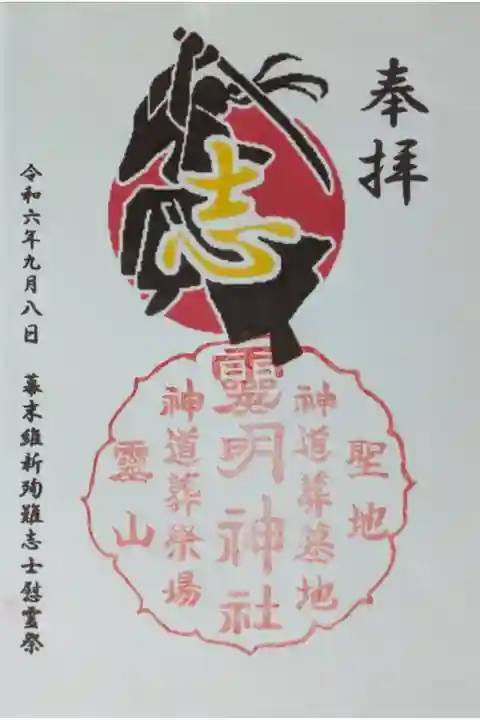 奉拝
志
聖地
神道葬墓地
霊明神社
神道葬祭場
霊山
令和六年九月八日 幕末維新殉難志士慰霊祭